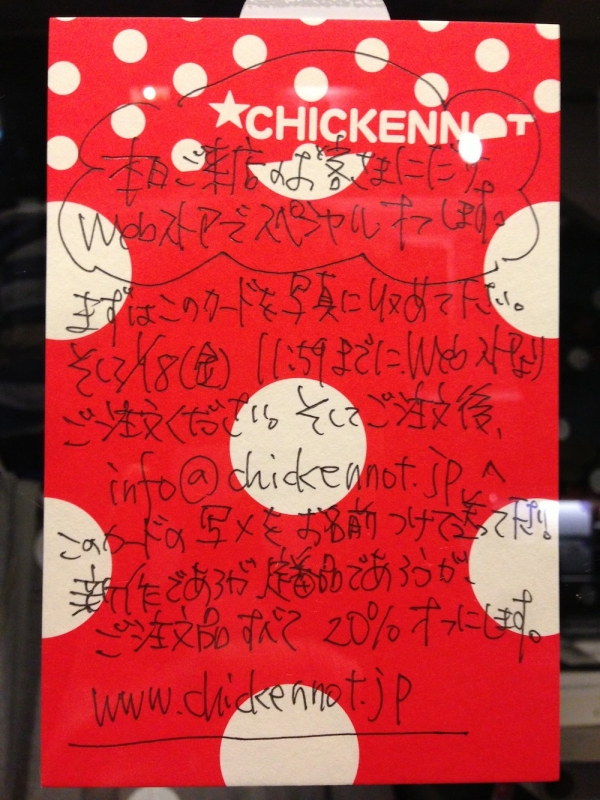 ★CHICKENNOT
本日ご来店のお客さまにだけ
Webストアでスペシャルオフします。
まずはこのカードを写真に収めて下さい。
そして3/18(金) 11:59までにWebストアより
ご注文ください。そしてご注文後、
info@chickennot.jp へ
このカードの写メをお名前つけて送って下さい。
新作であろうが定番品であろうが、
ご注文品すべて 20%オフにします。
www.chickennot.jp